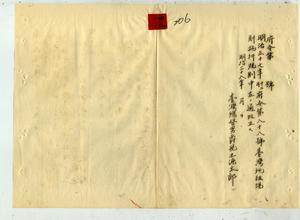 府令第　號
明治三十七年府令第八十八號臺灣地租規
則施行規則中左ノ通改正ス
明治三十八年　月　日
臺灣總督男爵兒玉源太郎
706